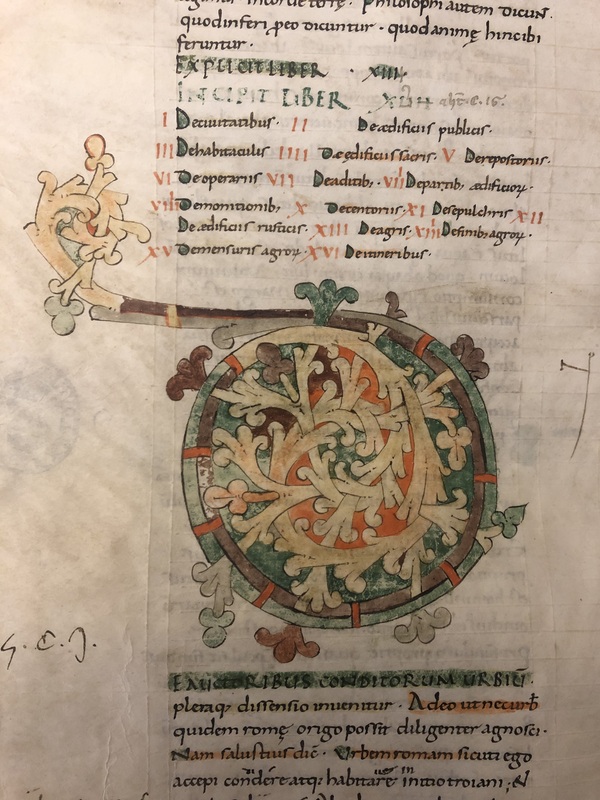 quod inferi peo dicuntur · quod animę hinc ibi
feruntur ·
EXPLICIT LIBER · XIIII·
INCIPIT LIBER
I De civitatibus · II De ędificiis publicis ·
III De habitaculis IIII De ędificiis sacris · V De repostoriis ·
VI De operariis VII De aditib; · VIII De partib; ædificioꝝ ·
VIIII De monitionib; X De tentoriis · XI De sepulchris XII
De ædificiis rusticis · XIII De agris · XIIII De finib; agroꝝ ·
XV De mensuris agroꝝ · XVI De itineribus ·
D
E AUCTORIBUS CONDITORUM URBIU̅ ·
pleraq; dissensio invenitur · Adeo ut nec urb̅
quidem romę origo possit diligenter agnosci ·
Nam salustius dic̅ · Urbem romam sicuti ego
accepi condere atq; habitare initio troiani, &